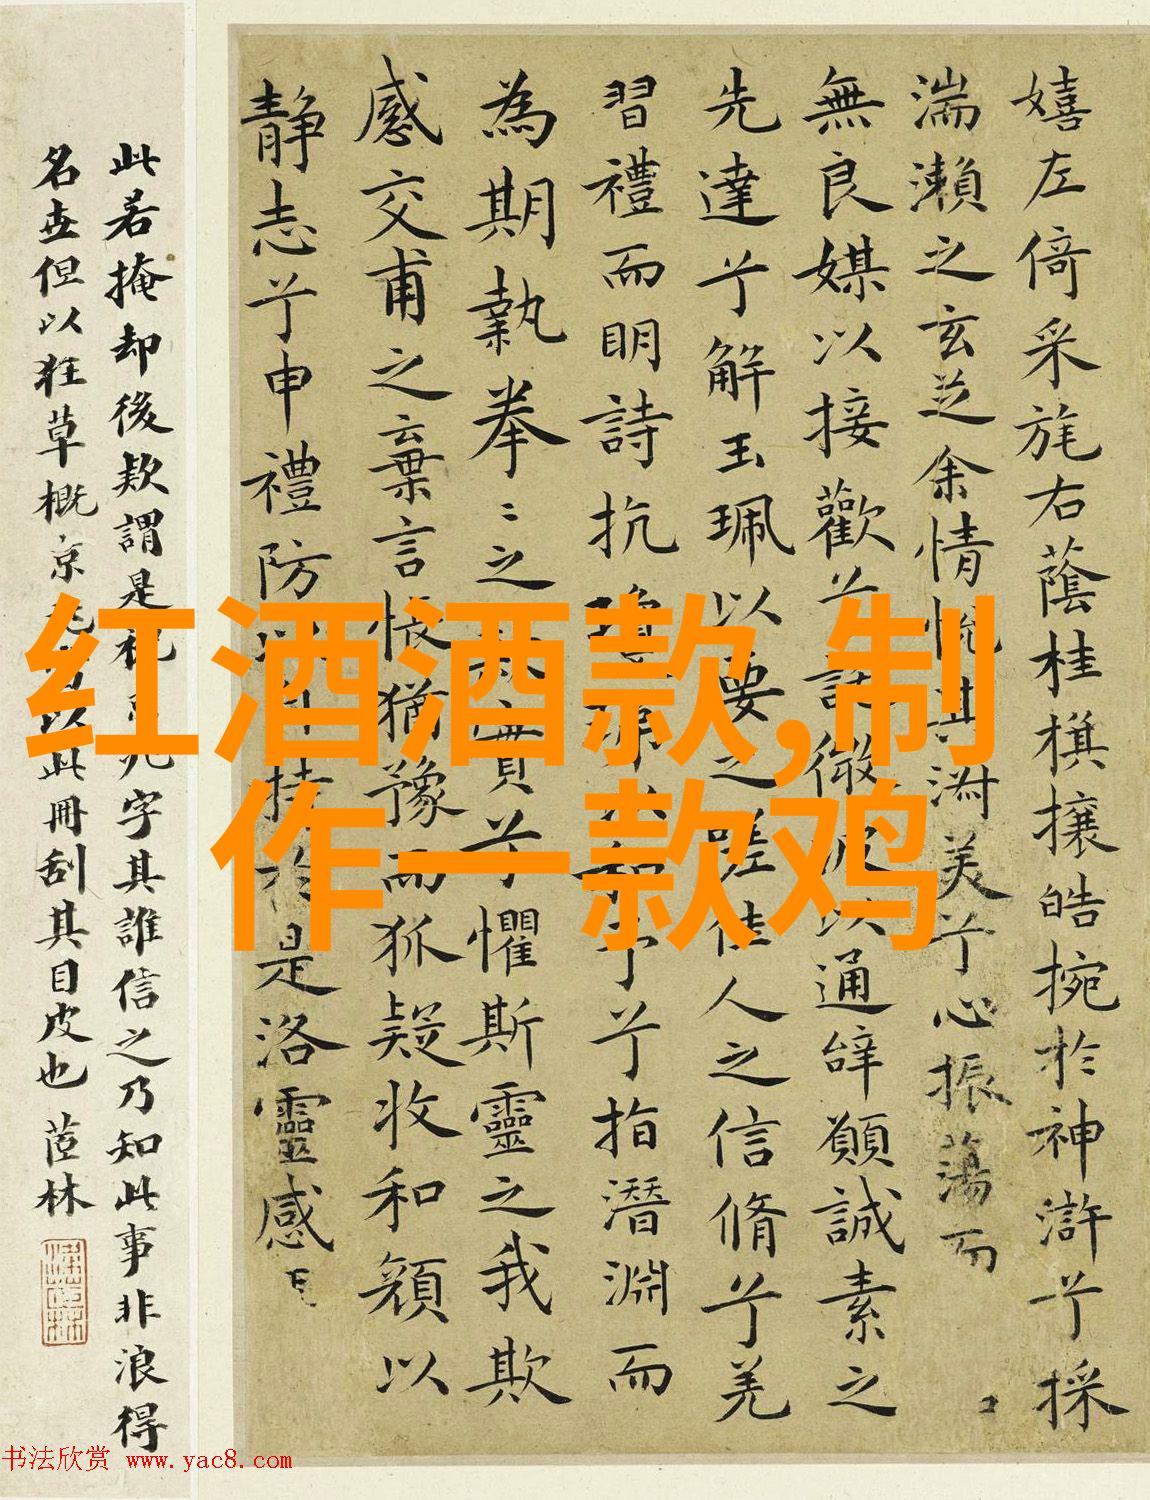 嬉左倚采旄右蔭桂檱攘皓捥於神滸兮採
湍瀨之玄芝余情悅其淑美兮心振蕩而
無良媒以接歡兮託微波以通辝願誠素之
先達兮解玉珮以要之嗟佳人之信脩兮羌
習禮而明詩抗瓊珶以和予兮指潛淵而
為期執拳〻之款實兮懼斯靈之我欺
感交甫之棄言悵猶豫而狐疑收和顏以
静志兮申禮防以自持於是洛靈感
此若掩却後款謂是祝京兆字其誰信之乃知此事非浪得
名世但以狂草概京兆以此冊刮其目皮也 茝林
红酒酒款,制
作一款鸡
书法欣赏 www.yac8.com